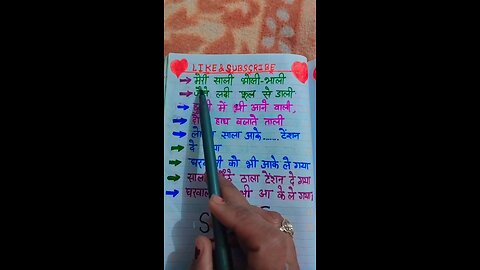 LIKE & SUBSCRIBE
मेरी साली भोली-भाली
लदी फूल से डाली
में थी आने वाली
हाथ बजाते ताली
साला आके ...... टेंशन
दे गया
घरवाली को भी आके ले गया
साला ठाला टेंशन दे गया
घरवाली भी आ के ले गया
S